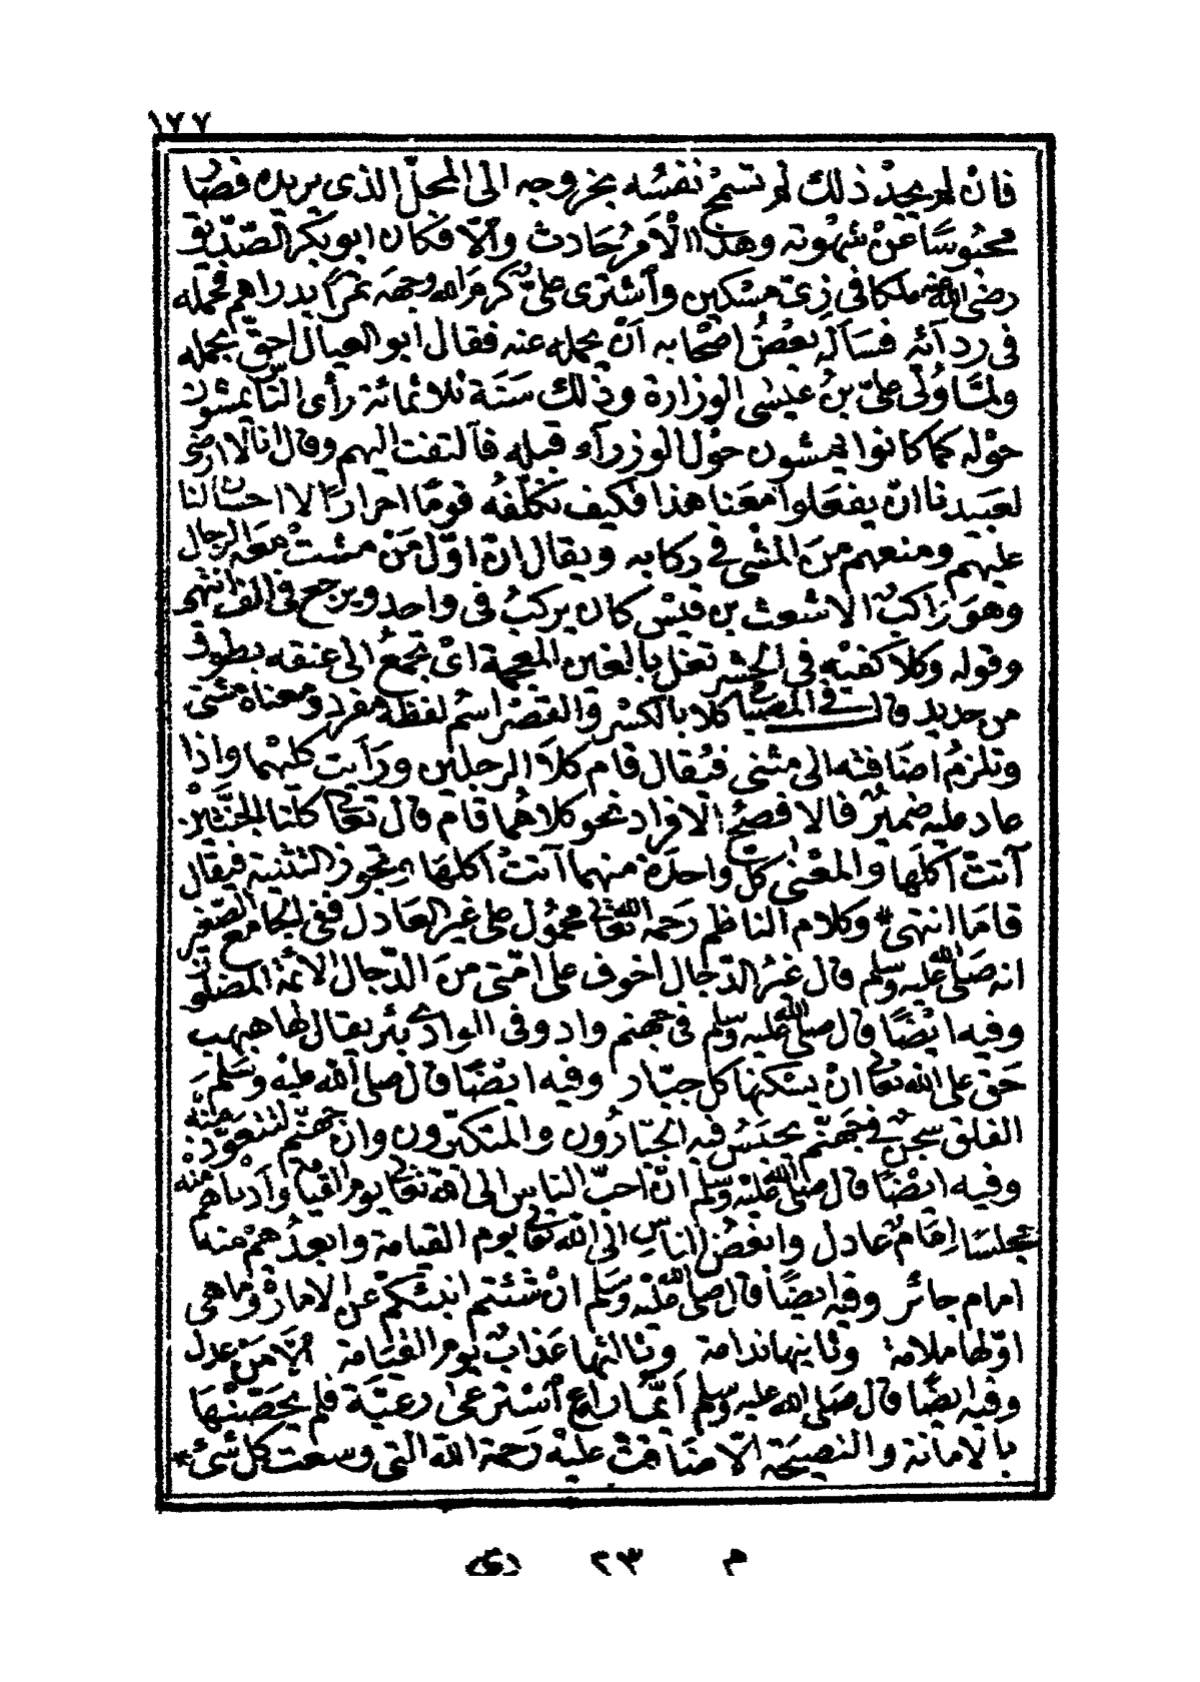 ١٧٧
فانْ لم يجدْ ذلك لم تسمحْ نفسُه بخروجه الى المحلّ الذى يريده فصار
محبُوسًا عَنْ شهْوته وهذا الْاَمرُ حَادث وَاِلّا فكان ابو بكر الصّدّيق
رضى الله عنه ملكا فى زىّ مسْكين وٱشترى علىّ كرم الله وجهَه تمرًا بدراهم فحمله
فى ردآئه فسَأله بعْضُ اصْحابه اَنْ يحمله عنه فقال ابو العيال احقّ بحمله
ولمّا وُلّى علىّ بنُ عيسٰى الوزارة وذلك سَنَة ثلاثمائة رأى النّاس يمشون
حوْله كما كانوا يمشون حَوْل الوزرآء قبله فٱلتفت اليهم وقال انا لا ارضى
لعَبيدنا انْ يفعَلوا معَنا هذا فكيف نكلّفهُ قومًا احرارًا لا احسان لنا
عليهم ومنعهم منَ المشْى فى ركابه ويقال انّ اوّل مَنْ مشتْ معَه الرجال
وهوَ رَاكبٌ الاشعث بن قيْس كان يركبُ فى واحد ويرجع فى الف انتهى
وقوله وكلا كفيْه فى الحشر تغل بالغين المعجمة اىْ تجمَعُ الى عنقه بطوق
من حديد قال فى المصباح كلا بالكسْر والقصْر اسمٌ لفظه مفرد ومعناه مثنى
وتلزمُ اضافته الى مثنى فيُقال قام كلاَ الرجلين ورَأيت كليْهما واذا
عاد عليه ضميرٌ فالافصحُ الافراد نحو كلاهُما قامَ قال تعالى كلتا الجنّتيْن
آتتْ اكلَها والمعْنى كلّ واحدَة منهما آتتْ اكلهَا ويجوز التثنية فيقال
قامَا انتهى * وكلام الناظم رَحمه الله تعالى محمُول على غير العَادل ففى الجامع الصّغير
انه صَلى الله عليه وسلم قال غيْرُ الدّجال اخوف على امّتى منَ الدّجال الائمّة المضلّون
وفيه ايْضًا قال صلى الله عليه وسلم فى جهنم واد وفى الوادى بئر يقال لها هبهب
حَقّ على الله تعالى انْ يسْكنها كل جبّار وفيه ايْضًا قال صلى الله عليه وَسَلم
الفلق سجنٌ فى جهَنّم يحبَسُ فيه الجبّارُون والمتكبّرون وانّ جهنّم لتتعوّذ منْه
وفيه ايْضًا قال صلى الله عليْه وَسَلم انّ احبّ الناس الى الله تعالى يوم القيامة وأدناهم منه
مجلسًا اِمَامٌ عَادل وابغضُ الناسِ الى الله تعالى يوم القيامة وابعدُهمْ منه
امام جائر وفيه ايضًا قال صلى الله عليْه وَسَلم انْ شئتم انبئكمْ عَن الامارة وما هى
اوّلها ملامة وثانيها ندامة وثالثها عَذابٌ يوم القيَامة اِلّا مَنْ عدل
وفيه ايضًا قال صَلى الله عليه وسلم اَيّمَا راع ٱسْترعىٰ رعيّة فلم يحصّنْهَا
بالامانة والنصيحَة الّا ضاقتْ عليْه رَحمة الله التى وسعت كل شئ *
م ٢٣ (ى)